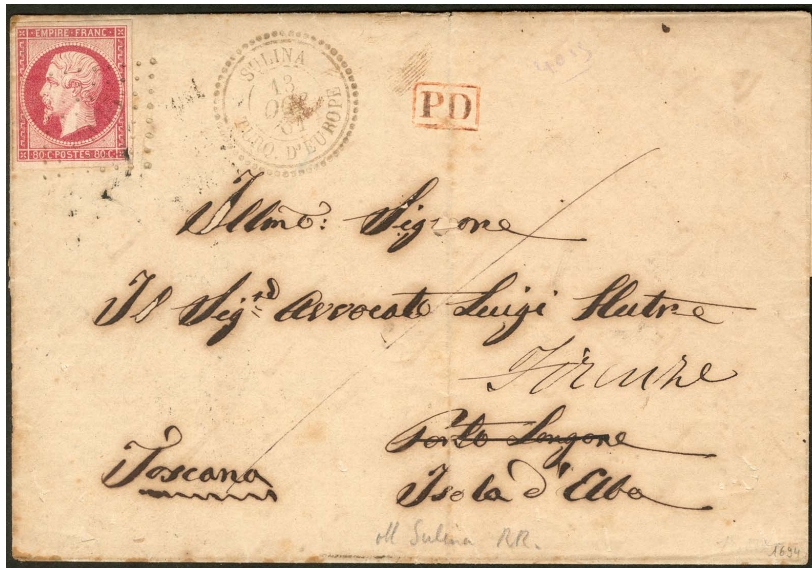 EMPIRE FRANC.
80 C POSTES 80 C
SULINA
13
OCT
61
TURQ. D'EUROPE
PD
Illmo: Signore
Il Sigrd Avvocato Luigi
Firenze
Porto Longone
Toscana
Isola d'Elba
off Sulina RR.
1694